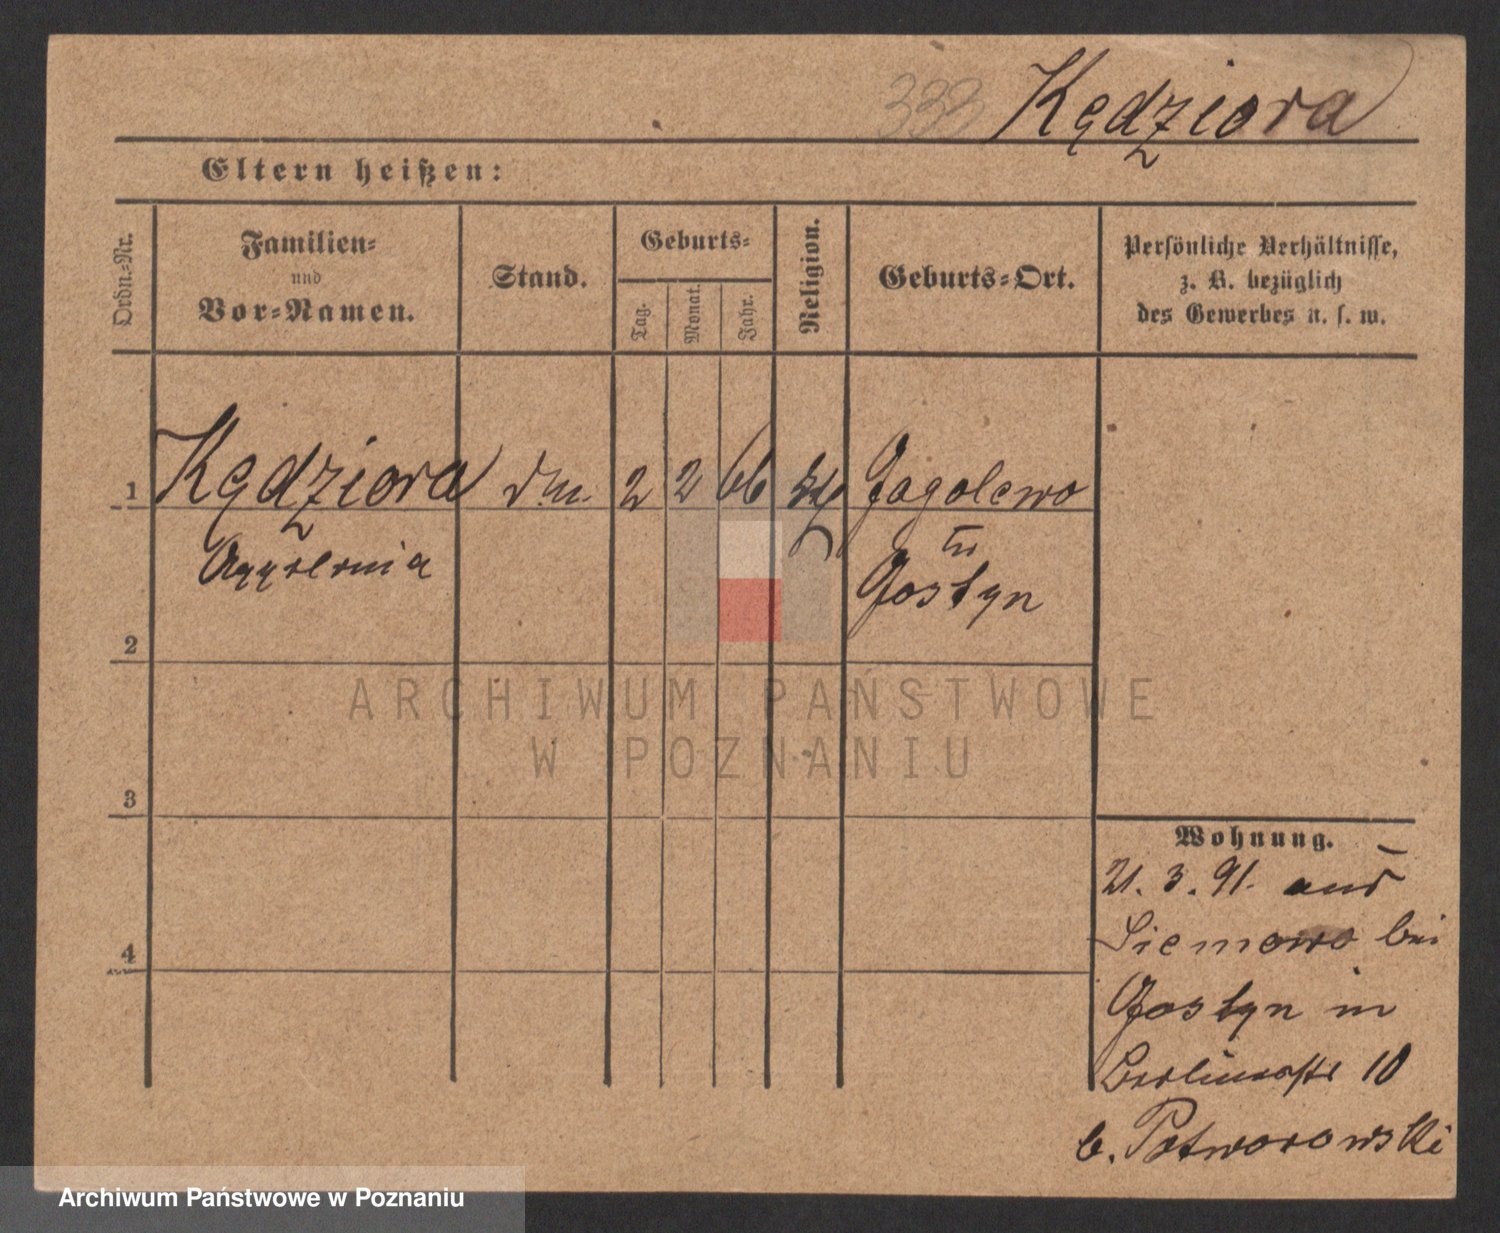 333 Kędziora
Eltern heißen:
Ordn.-Nr.
Familien-
und
Vor-Namen.
Stand.
Geburts-
Tag.
Monat.
Jahr.
Religion.
Geburts-Ort.
Persönliche Verhältnisse,
z. B. bezüglich
des Gewerbes u. s. w.
1 Kędziora 2 2 66 Jagolewo
Appolonia
Gostyn
2
3
4
ARCHIWUM PAŃSTWOWE
W POZNANIU
Wohnung.
21. 3. 91.
Siemowo bei
Gostyn in
Berlinerstr 10
b. Potworowski
Archiwum Państwowe w Poznaniu